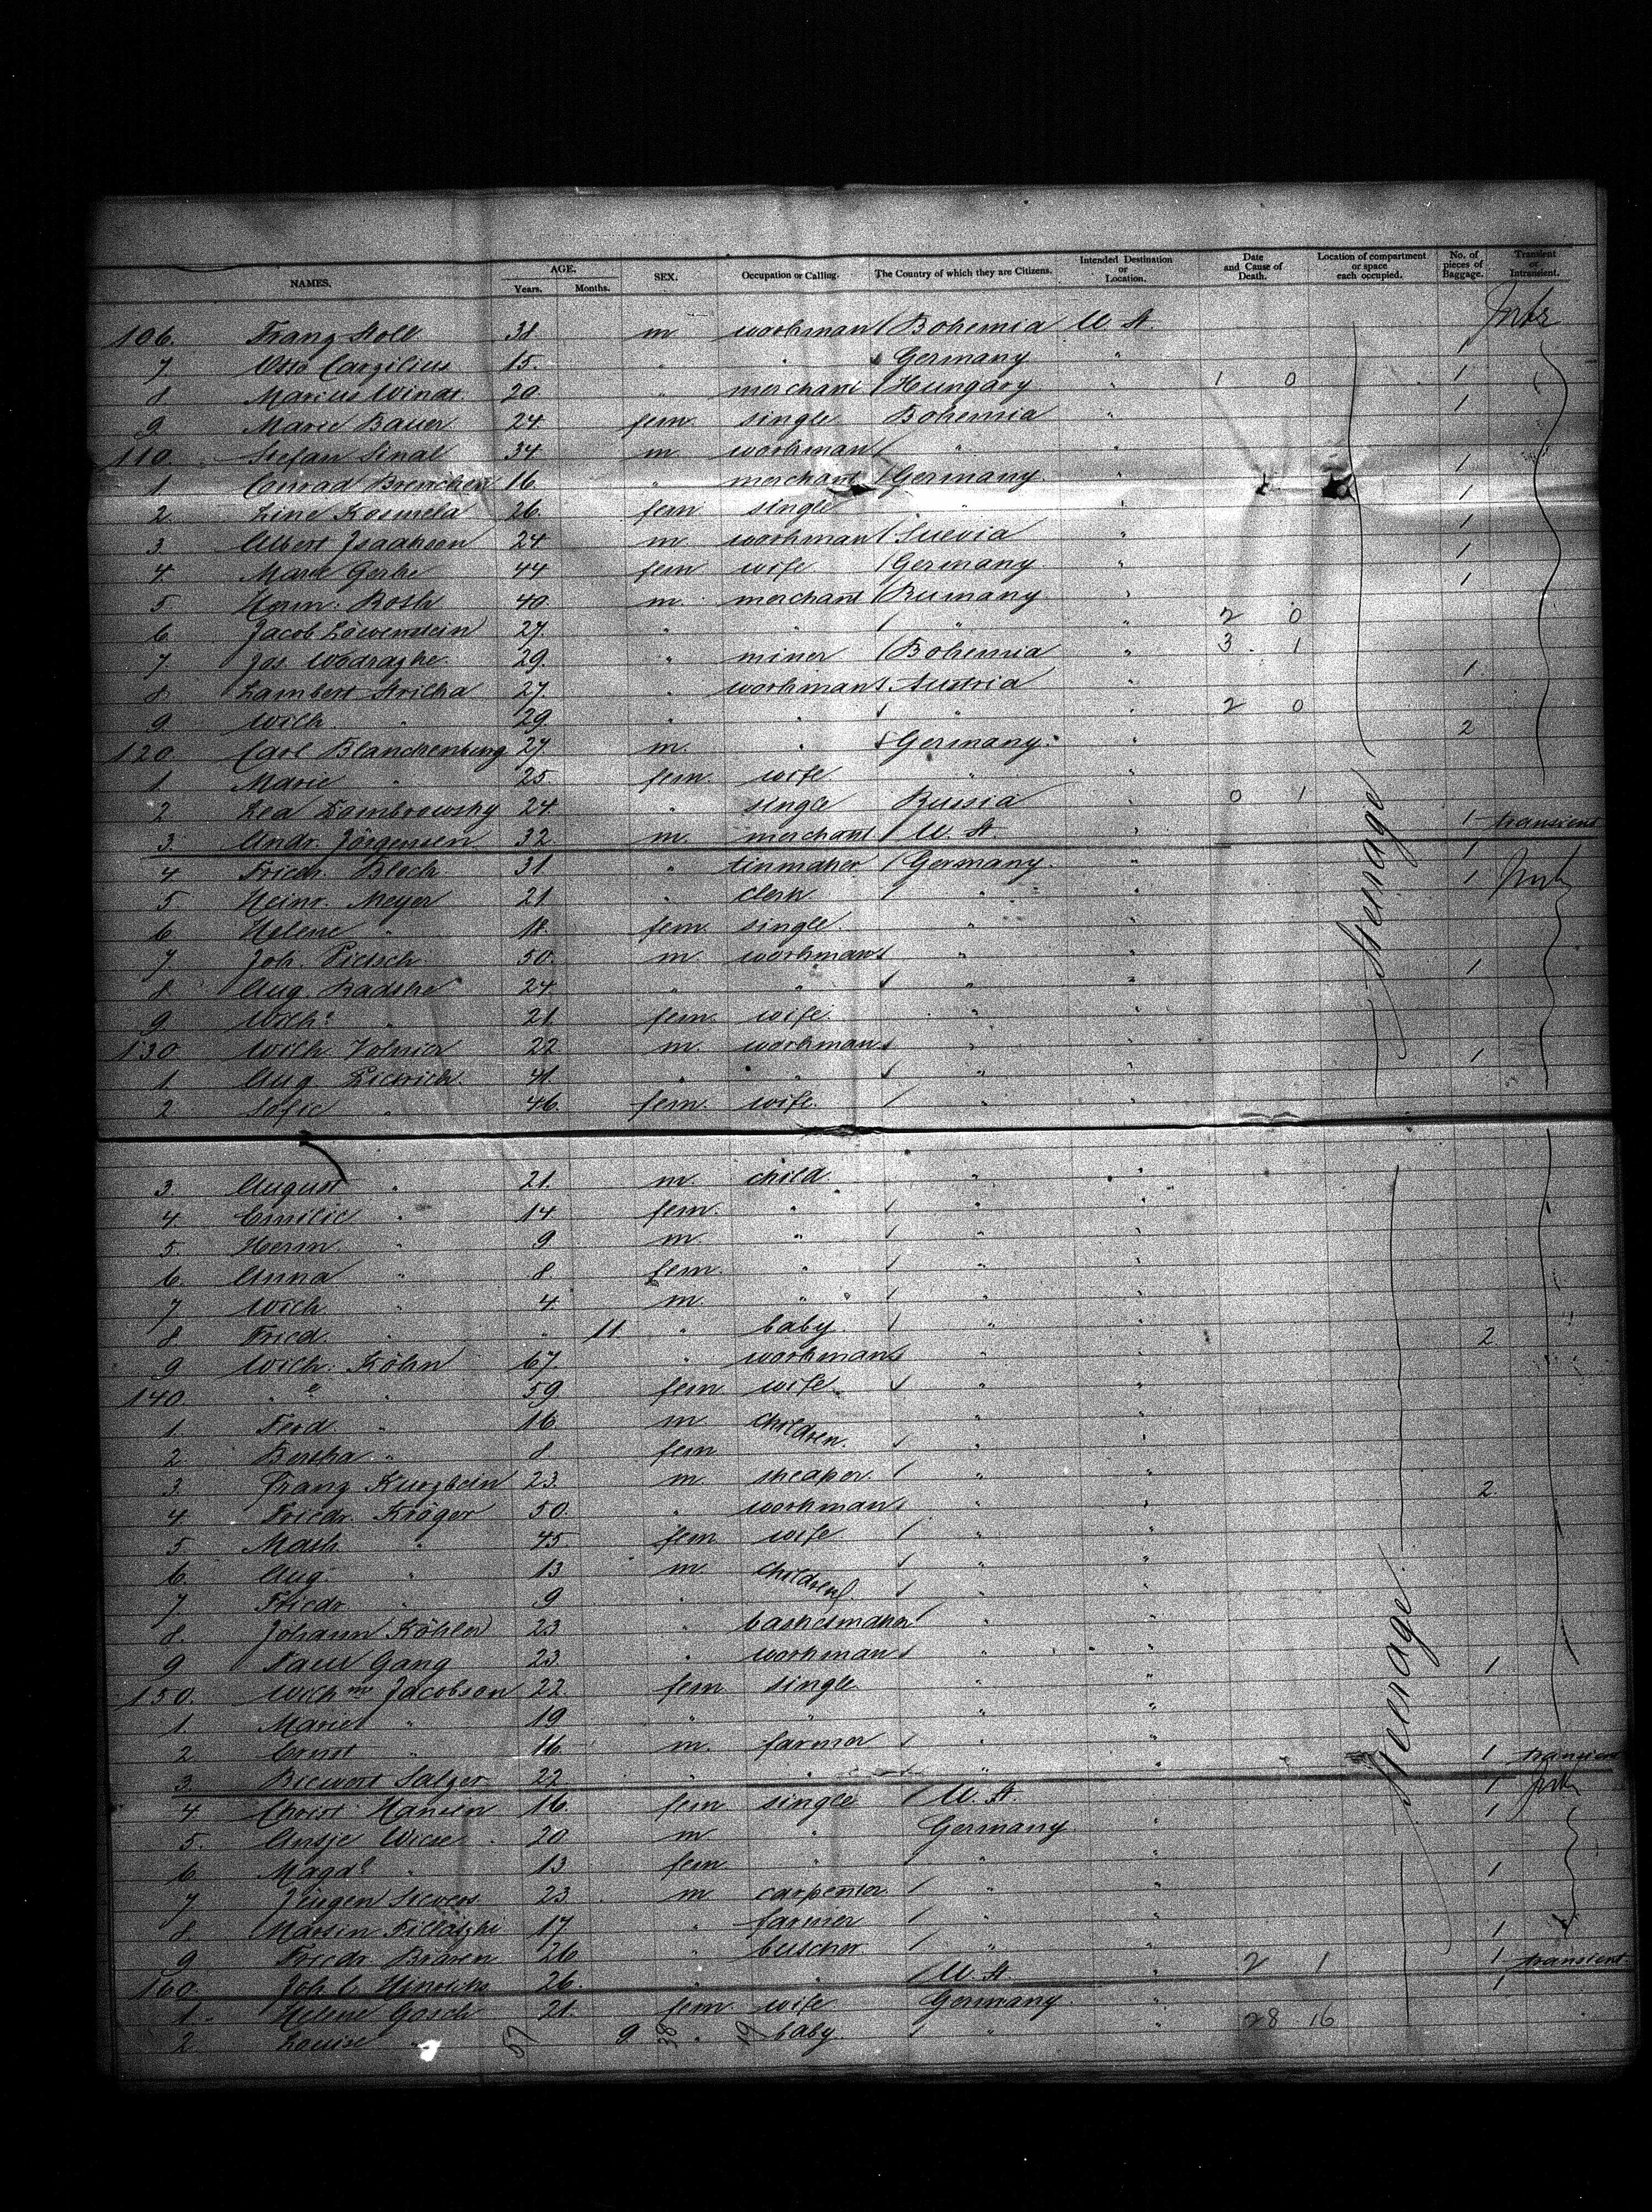 NAMES. AGE. Years. Months. SEX. Occupation or Calling. The Country of which they are Citizens. Intended Destination or Location. Date and Cause of Death. Location of compartment or space each occupied. No. of pieces of Baggage. Transient or Intransient.
106. Franz Stoll 31 m workman Bohemia U. St.
7 Otto Cargilius 15. " " Germany " 1
8 Marius Windt 20 " merchant Hungary " 1 0 1
9 Marie Bauer 24 fem single Bohemia " 1
110. Stefan Sinal 34 m workman " "
1 Conrad Brenichen 16 " merchant Germany " 1
2 Line Kosmela 26 fem single " " 1
3 Albert Isaakson 24 m. workman Suevia " 1
4. Marie Gerke 44 fem wife Germany " 1
5 Herm: Roth 40. m. merchant Rumany " 1
6 Jacob Löwenstein 27. " " " " 2 0
7. Jos Wodrazke 29. " miner Bohemia " 3 1
8 Lambert Striska 27. " workman Austria " 1
9. Wilh. " 29. " " " " 2 0
120. Carl Blanckenburg 27. m. " Germany " 2
1. Marie " 25 fem. wife " "
2 Lea Dambrowsky 24. " single Russia " 0 1
3. Andr. Jörgensen 32 m. merchant U. St. " 1 transient
4 Friedr. Blech 31. " tinmaker Germany. " 1
5 Heinr. Meyer 21 " clerk " " 1
6 Helene " 18. fem. single. " "
7. Joh. Pietsch 50. m workman " "
8 Aug. Radtke 24 " " " " 1
9 Wilhe " 21. fem. wife. " "
130 Wilh. Volmer 22 m. workman " "
1 Aug Dietrich. 41. " " " " 1
2 Sofie " 46. fem. wife. " "
Steerage
3. August " 21. m. child " "
4. Emilie " 14 fem. " " "
5. Herm. " 9 m. " " "
6. Anna " 8. fem. " " "
7 Wilh. " 4. m. " " "
8 Fried. " " 11 " baby " "
9 Wilh: Köhn 67. " workman " " 2
140. " e " 59 fem wife " "
1. Ferd. " 16 m. children. " "
2. Bertha " 8 fem " "
3. Franz Kurzbein 23. m. " "
4. Friedr. Kröger 50. " workman " " 2
5 Math. " 45. fem. wife " "
6. Aug. " 13 m. children " "
7. Friedr. " 9 " " "
8. Johann Köhler 23 " basketmaker " "
9 Paul Gang 23. " workman " "
150. Wilhme Jacobson 22. fem single " " 1
1. Marie " 19 " " " "
2. Ernst " 16. m. farmer " "
3. Salzer 22 " " " " 1 transient
4 Christ. Hansen 16. fem single U. St. " 1
5. Antje Wiese 20 m " Germany " 1
6. Magde " 13 fem " " "
7 Jürgen 23 m carpenter " " 1
8 17 " farmer " "
9 Friedr. 26 " butcher " " 1
160. Joh. C. Hinrichs 26. " " U. St. " 2 1 1 transient
1. Helene Gosch 21. fem wife Germany " 1
2. Louise " 9 " baby " " 28 16
57 38 19
Steerage